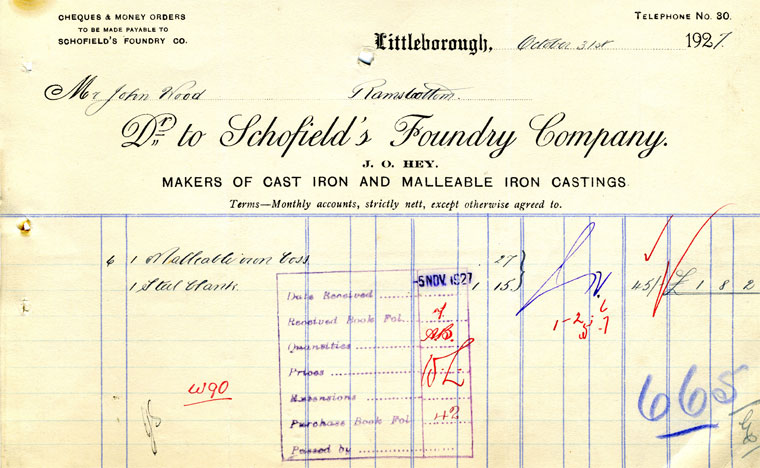 CHEQUES & MONEY ORDERS
TO BE MADE PAYABLE TO
SCHOFIELD'S FOUNDRY CO.
TELEPHONE NO. 30.
Littleborough, October 31st 1927.
Mr John Wood Ramsbottom.
Dr to Schofield's Foundry Company.
J. O. HEY.
MAKERS OF CAST IRON AND MALLEABLE IRON CASTINGS
Terms—Monthly accounts, strictly nett, except otherwise agreed to.
6 1 Malleable iron Boss 27
1 Steel 1 15 45/- £ 1 8 2
-5 NOV. 1927
Date Received
Received Book Fol.
Quantities
Prices
Extensions
Purchase Book Fol 42
Passed by
W90
665